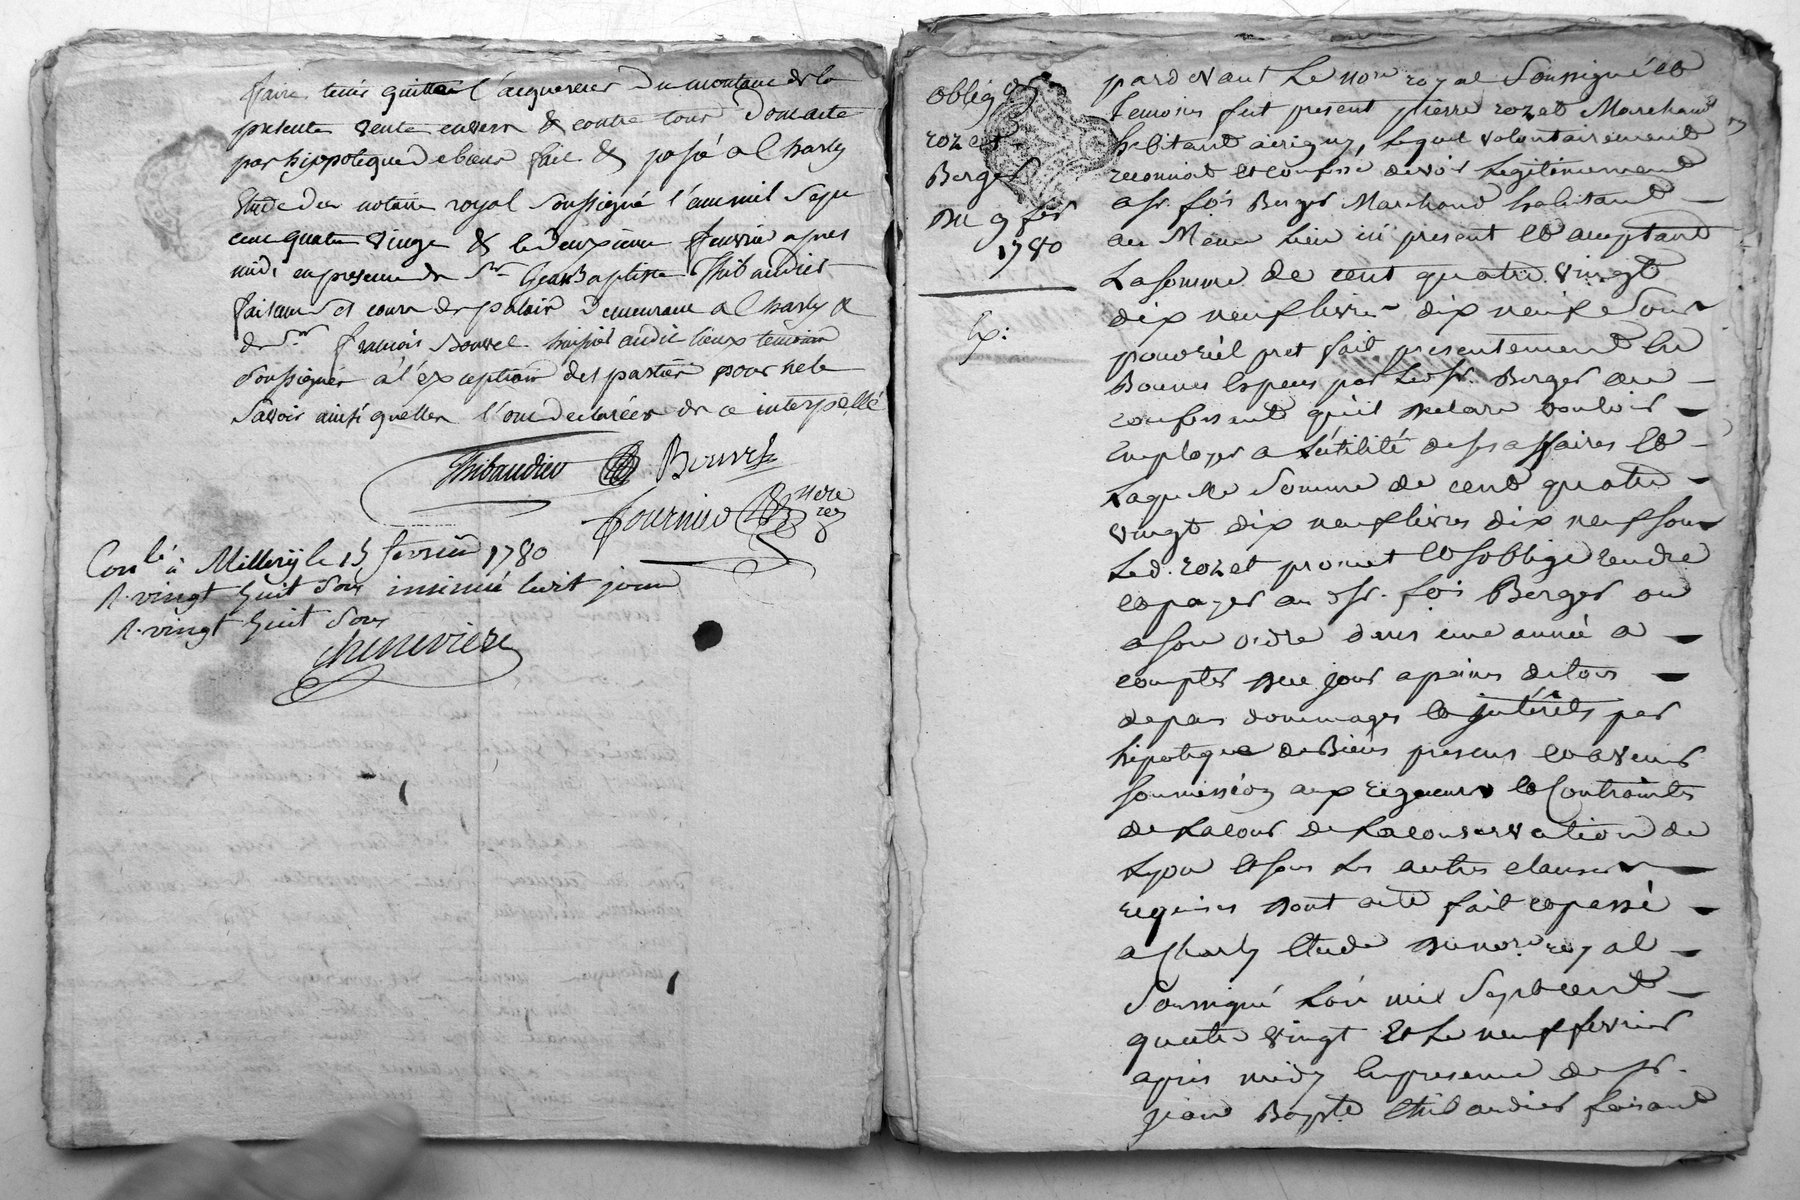 faire tenir quitte l'acquereur du montant de la
presente vente envers & contre tous dont acte
par hippoteque de biens fait & passé a Charly
Etude du notaire royal soussigné l'an mil sept
cent quatre vingt & le deuxieme fevrier apres
midi en presence de Sr Jean Baptiste Thibaudier
faisant et cours de palais demeurant a Charly &
de Sr francois Bouvet audit lieux temoins
soussignés à l'exception des parties pour ne le
savoir ainsi quelles l'ont declarées de ce interpellé
Thibaudier Bouvet
fournier nore
roy
Conlé à Millery le 15 fevrier 1780
R. vingt huit sous insinué huit jour
R. vingt huit sous
Chenevière
obligon
rozet
Berger
Du 9 fer
1780
Ex:
pardevant Le nore royal soussigné et
temoins fut present pierre rozet Marchand
habitant a irigny, lequel volontairement
reconnoit et confesse devoir legitimement
a sr. fois Berger Marchand habitant
au Meme lieu ici present et acceptant
La somme de cent quatre vingt
dix neuf livres dix neuf sous
pour réel pret fait presentement en
Bonnes especes par Led sr. Berger au
confessant qu'il declare vouloir
employer a L'utilité de ses affaires et
Laquelle somme de cent quatre
vingt dix neuf livres dix neuf sous
Led. rozet promet et soblige rendre
et payer au d sr. fois Berger ou
a son ordre dans une année a
compter de ce jour a peines de tous
depens dommages et intérêts par
hipoteque de Biens presens et avenir
soumission aux rigueurs et Contraintes
de La cour de La conservation de
Lyon et sous les autres clauses
requises dont acte fait et passé
a Charly Etude du nore royal
soussigné L'an mil Sept cent
quatre vingt et Le neuf fevrier
après midy En presence de sr.
jean Bapte thibaudier faisant